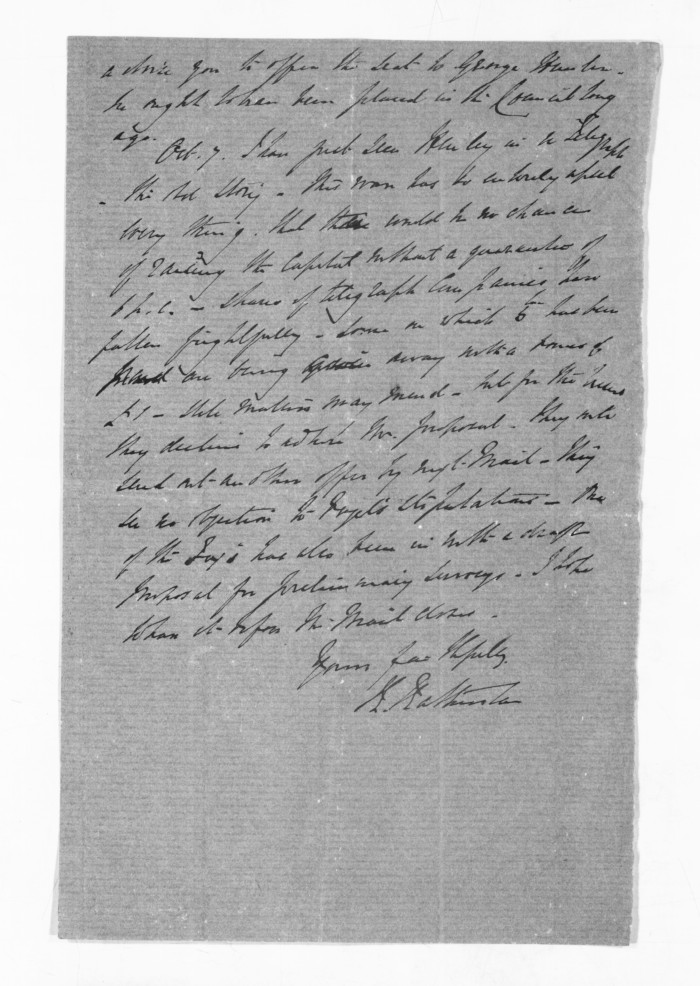 advise you to offer the seat to George Hunter -
he ought to have been placed in the Council long
ago.
Oct. 7. I have just seen Henley in re Telegraph
- the old story - This war has so entirely upset
every thing. that there would be no chance
of raising the Capital without a guarantee of
6 p.c. - shares of telegraph Companies have
fallen frightfully - some on which £ has been
are being away with a bonus of
£1 - still matters may mend - but for the present
they decline to adhere proposal - They will
send out another offer by next Mail - They
see no objection to stipulations - One
of the has also been in with a draft
proposal for preliminary surveys - I hope
to have it before the Mail closes -
Yours faithfully